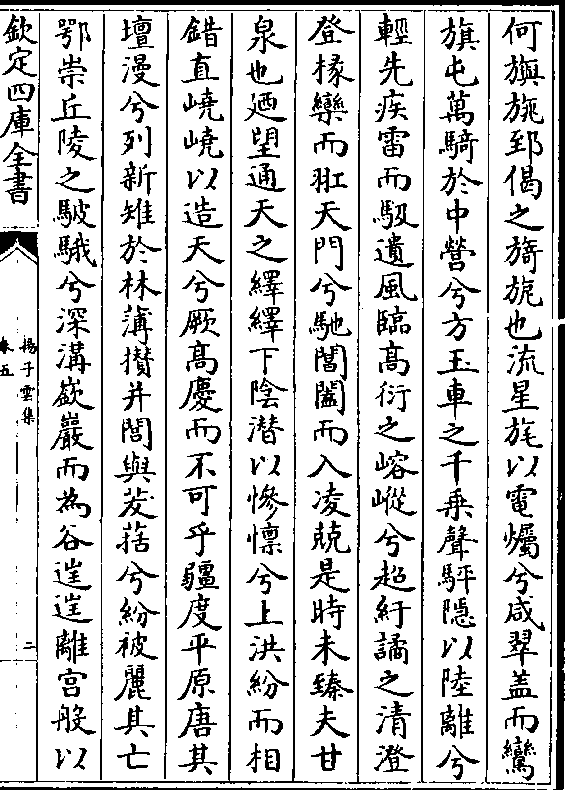 何旟旐郅偈之旖旎也流星旄以電爥兮咸翠盖而鸞
旗屯萬騎於中營兮方玉車之千乘聲駍隠以陸離兮
輕先疾雷而馺遺風臨髙衍之嵱嵷兮超紆譎之清澄
登椽欒而羾天門兮馳閶闔而入凌兢是時未臻夫甘
泉也廼望通天之繹繹下陰潜以慘懍兮上洪紛而相
錯直嶢嶢以造天兮厥髙慶而不可乎疆度平原唐其
壇漫兮列新雉於林薄攅并閭與茇葀兮紛被麗其亡
鄂崇丘陵之駊騀兮深溝嶔巖而為谷迬迬離宫般以
欽定四庫全書
揚子雲集
卷五
二